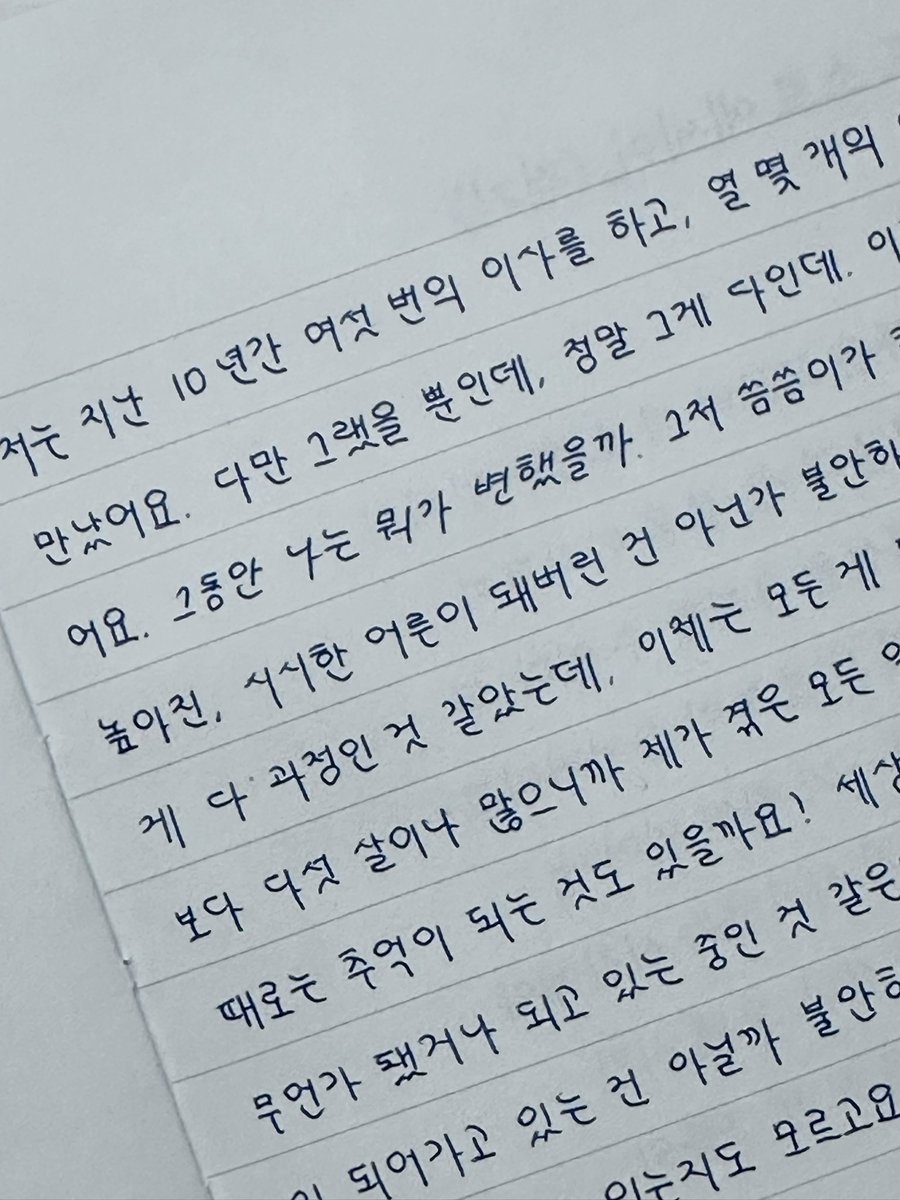 저는 지난 10년간 여섯 번의 이사를 하고, 열 몇 개의
만났어요. 다만 그랬을 뿐인데, 정말 그게 다인데. 이
어요. 그동안 나는 뭐가 변했을까. 그저 씀씀이가
높아진, 시시한 어른이 돼버린 건 아닌가 불안하
게 다 과정인 것 같았는데, 이제는 모든 게
보다 다섯 살이나 많으니까 제가 겪은 모든
때로는 추억이 되는 것도 있을까요! 세상
무언가 됐거나 되고 있는 중인 것 같은
되어가고 있는 건 아닐까 불안하
있는지도 모르고요